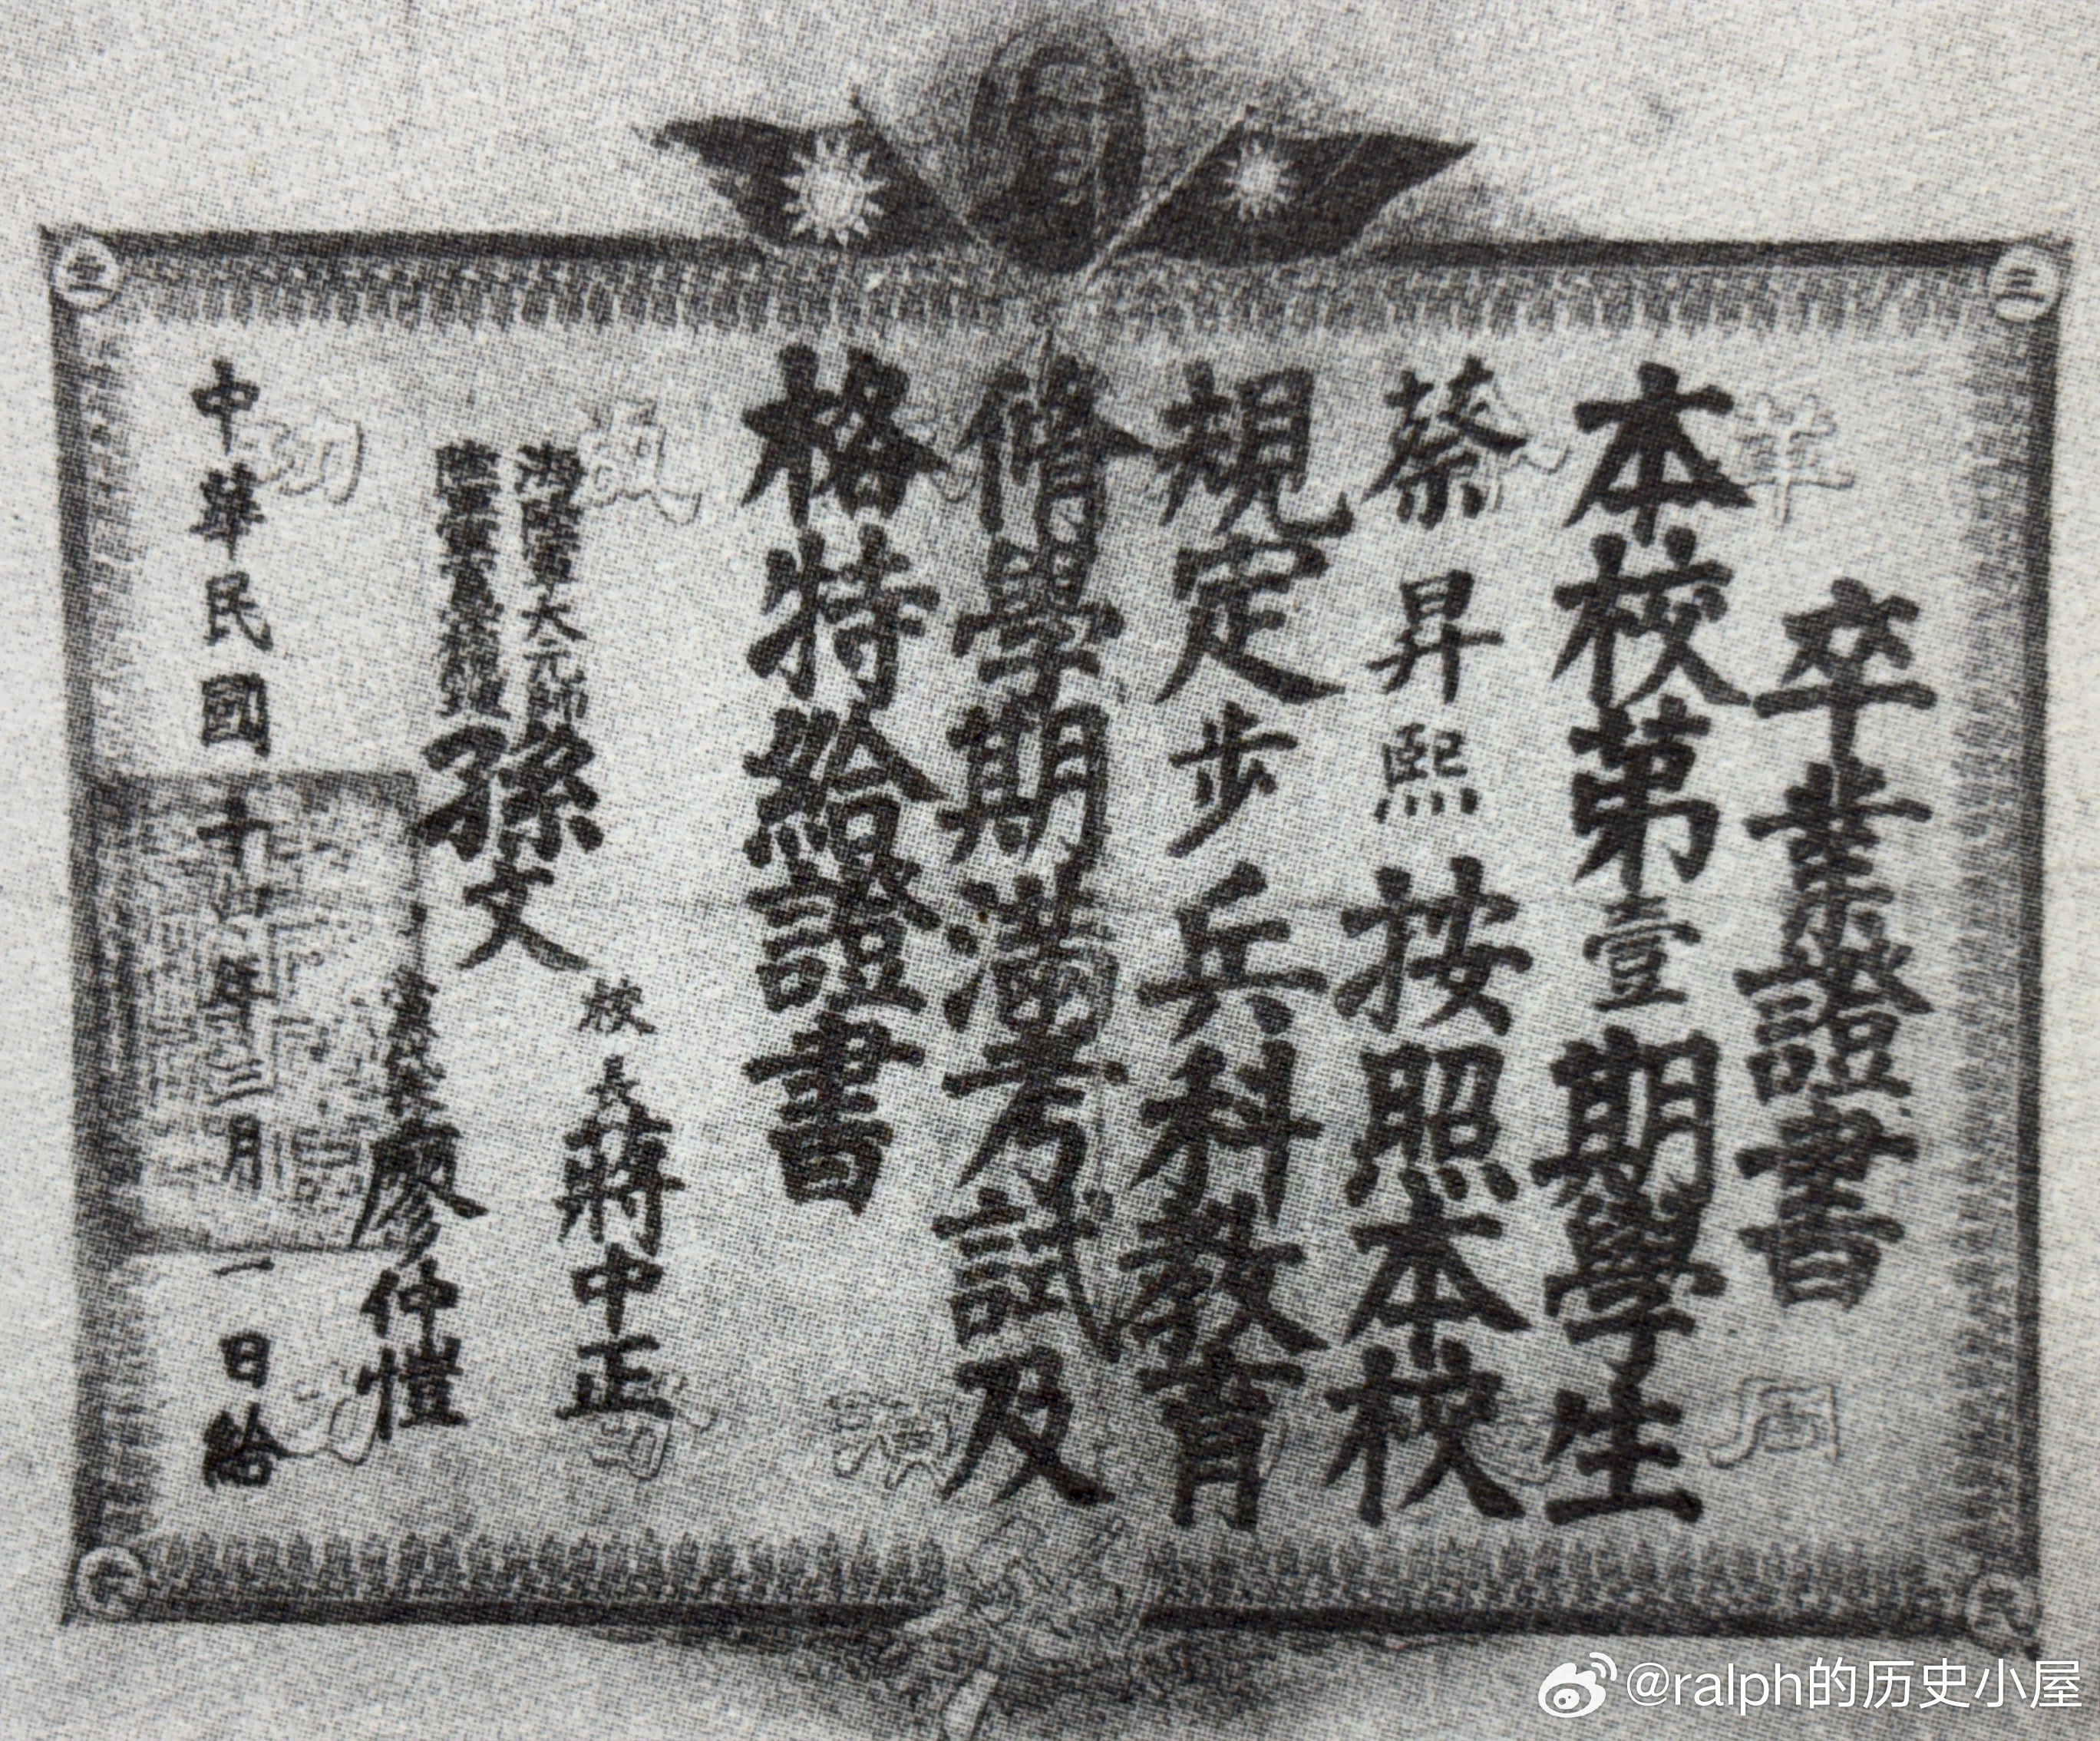 卒業證書
本校第壹期學生
蔡昇熙按照本校
規定步兵科教育
脩學期滿考試及
格特給證書
海陸軍大元帥
陸軍軍官學校總理
孫文
校長蔣中正
黨代表廖仲愷
中華民國十四年三月一日給
@ralph的历史小屋